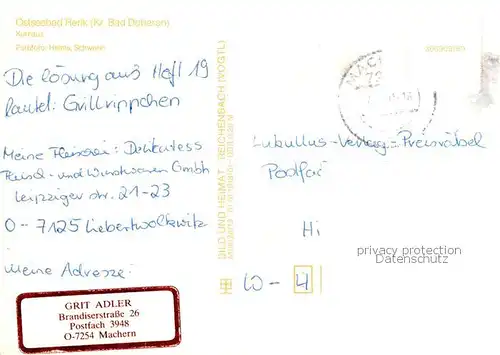 Ostseebad Rerik (Kr. Bad Doberan)
Kurhaus
Die Lösung aus Heft 19
lautet: Grillrippchen
Meine Fleischerei: Delikatess
Fleisch- und Wurstwaren Gmbh
Leipziger Str. 21-23
O-7125 Liebertwolkwitz
meine Adresse:
GRIT ADLER
Brandiserstraße 26
Postfach 3948
O-7254 Machern
BILD UND HEIMAT REICHENBACH (VOGTL)
MACH
72
Lukullus-Verlag-Preisrätsel
Postfach
Hi
privacy protection
Datenschutz
W-4